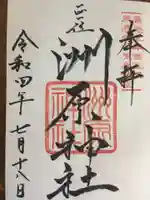 奉拝
正一位
洲原神社
令和四年七月十八日